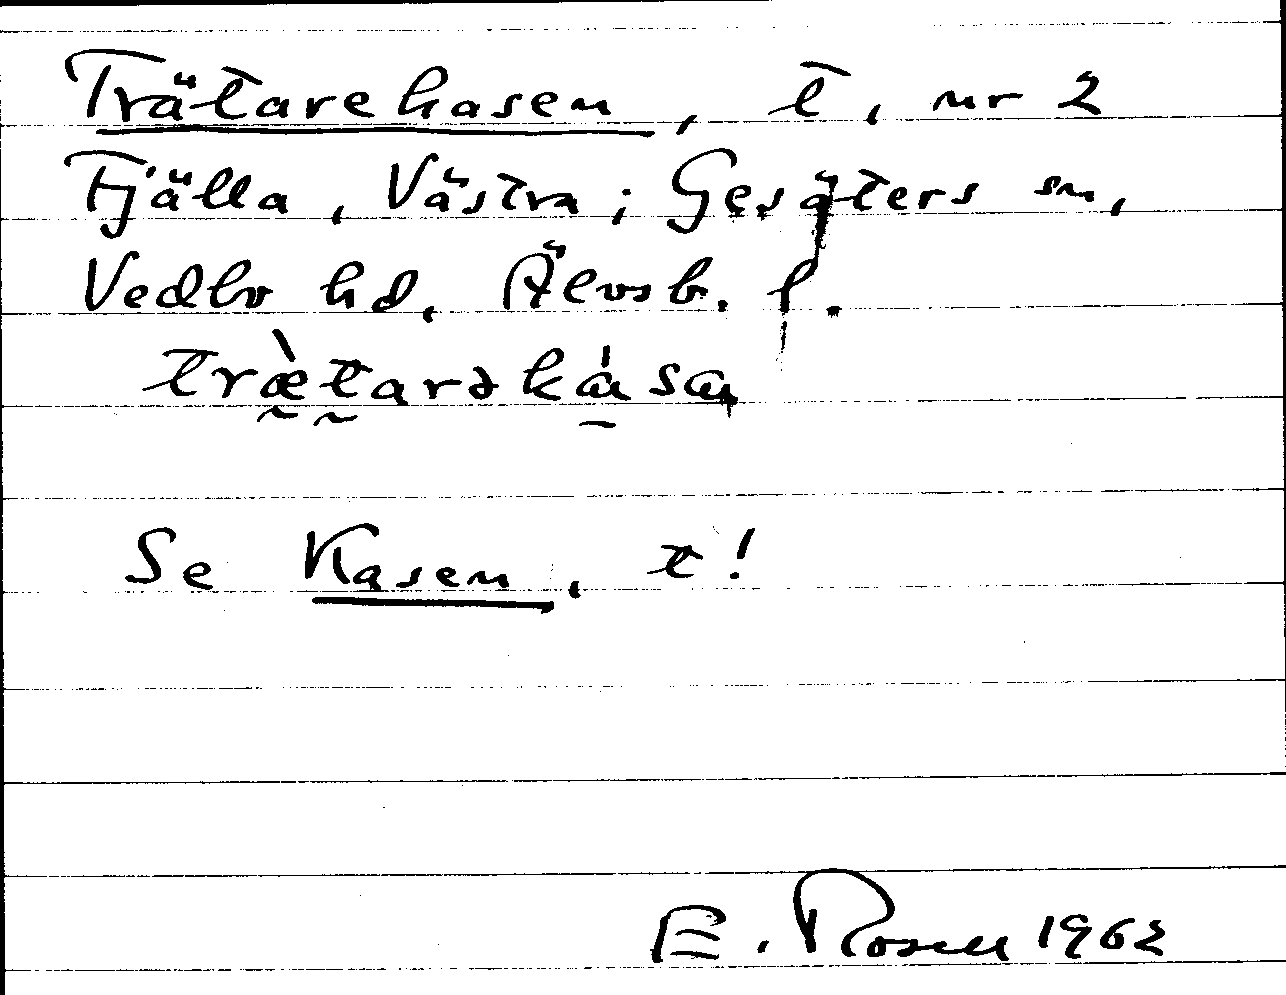 Trätarekasen, t, nr 2
Fjälla, Västra; Gesäters sn,
Vedbo hd. Älvsb. l.
Se Kasen, t!
E. Rosell 1962